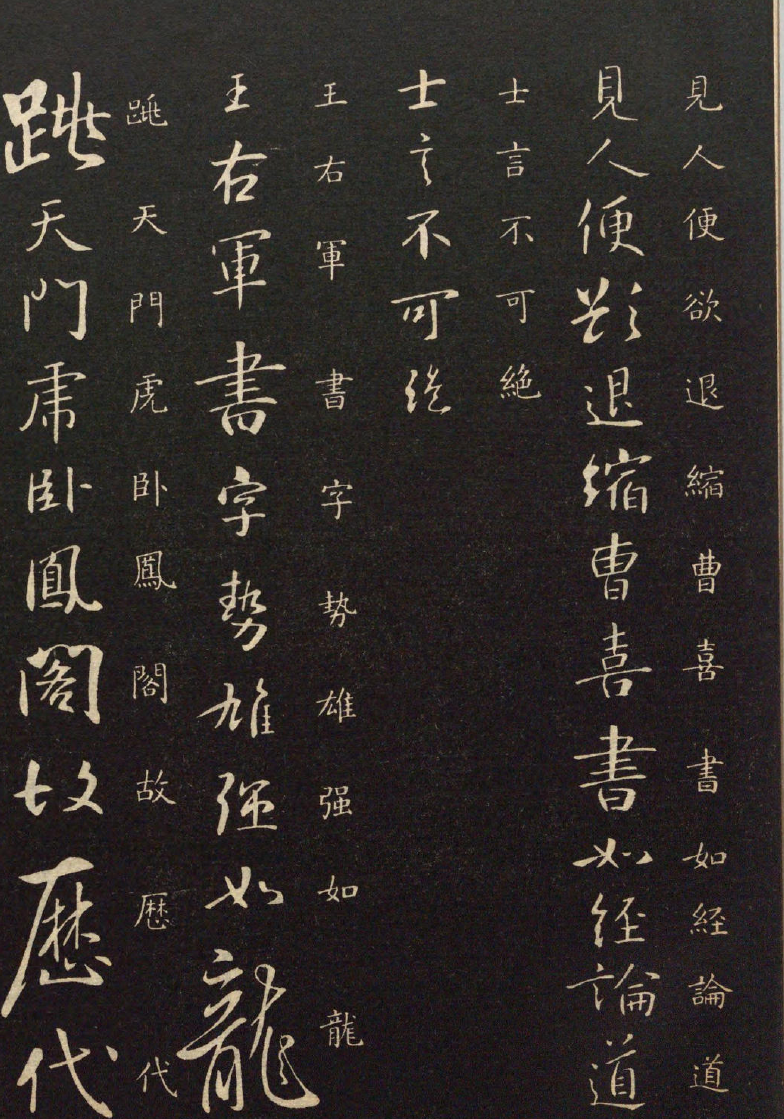 見人便欲退縮曹喜書如経論道
見人便欲退縮曹喜書如経論道
士言不可絶
士言不可絶
王右軍書字勢雄强如龍
王右軍書字勢雄强如龍
跳天門虎卧鳳閣故歴代
跳天門虎卧鳳閣故歴代